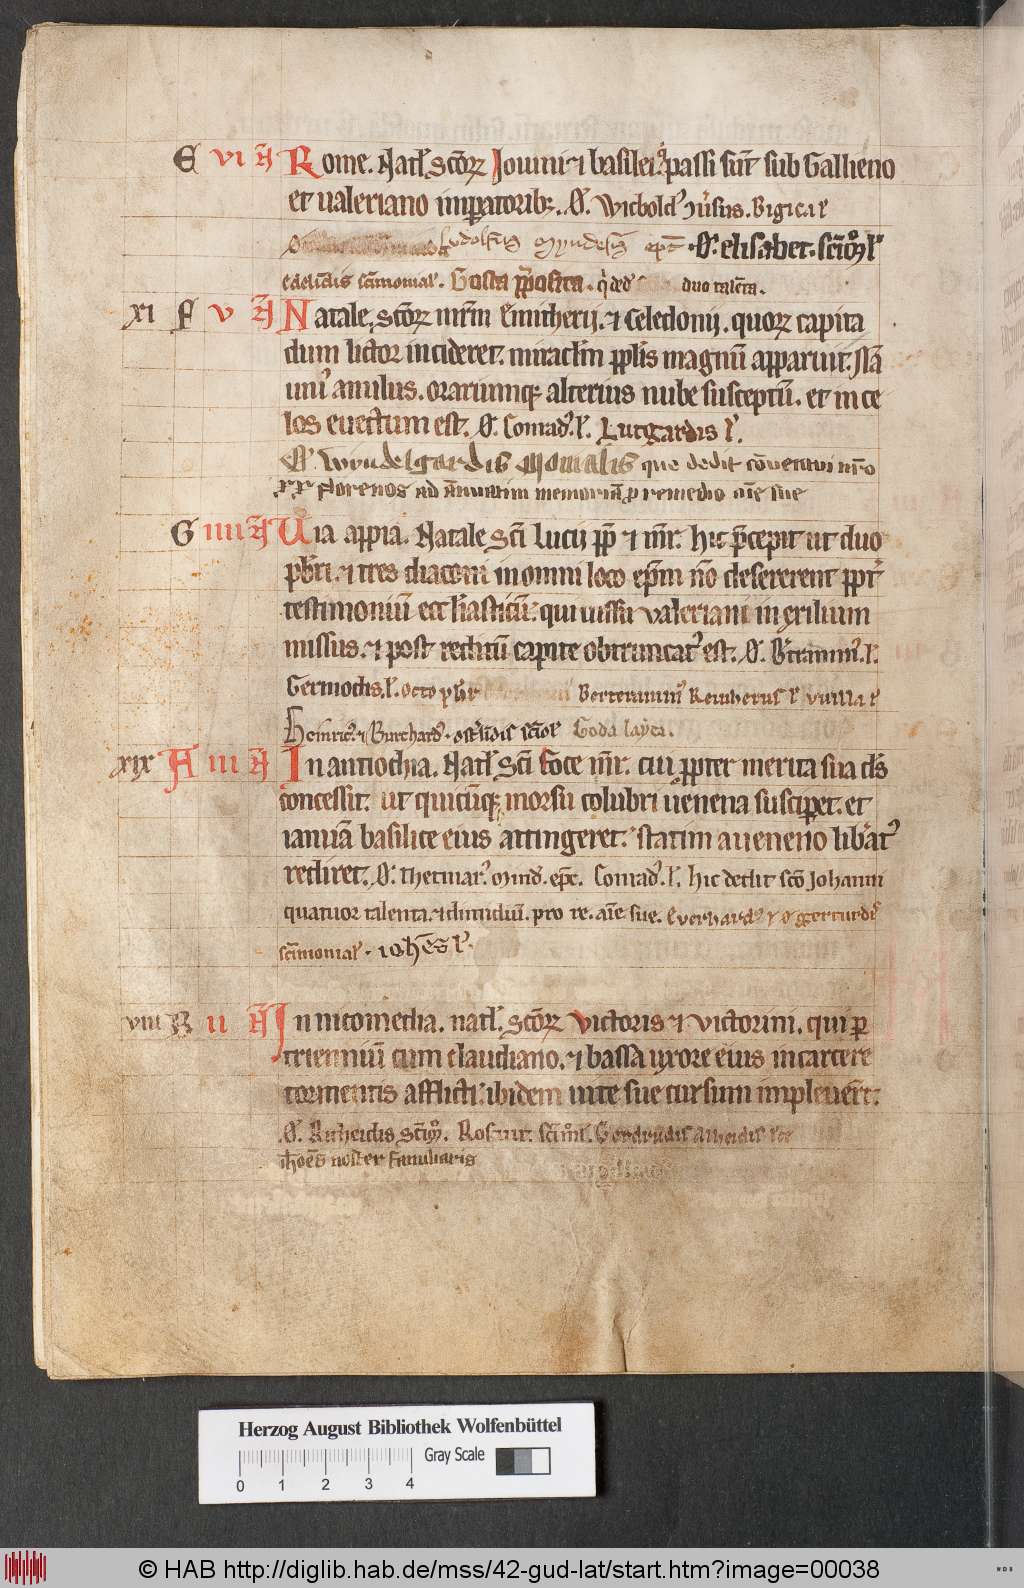 E VI Ā Rome. Natł. scōꝝ Iouini ⁊ basilei. q̇ passi sūt sub Gallieno
et ualeriano imꝑatoribꝫ. O. Wicbold' Bigica ł
ludolfus Myndeſis epc̄ . O. elisabet. sc̄imōł
sc̄imonial'. Gosta p̄posita. q̇ ded' duo talēta.
XI F V Ā Natale. scōꝝ mr̄m Emitherij. ⁊ Celedonij. quoꝝ capita
dum lictor incideret. miraclm̄ ppłis magnū apparuit. Nā
uni' anulus. orariumqꝫ alterius nube susceptū. et in ce
los euectum est. O. Conrad'. ł. Lutgardis ł.
O. Wyndelgardis Monialis que dedit cōuentui nr̄o
xx florenos ad ānuatim memoriā ꝓ remedio aīe sue
G IIII Ā Uia appia. Natale sc̄i Lucii pp̄ ⁊ mr̄. hic p̄cepit ut duo
pb̄ri. ⁊ tres diaconi in omni loco ep̄m nō desererent ppt'
testimoniū eccłiasticū. qui iussu valeriani in exilium
missus. ⁊ post reditū capite obtruncat' est. O. ł.
ł. Bertrammus Reinherus ł ł
Heinric'. ⁊ Burchard'. Goda layca.
XIX A III Ā In antiochia. Natł. sc̄i Foce mr̄. cui ꝓpter merita sua dn̄s
concessit. ut quicūqꝫ morsu colubri uenena susciperet. et
ianuā basilice eius attingeret. statim a ueneno liberat'
rediret. O. Thetmar'. Mind. epc̄. Conrad'. ł. hic dedit scō Johanni
quatuor talenta. ⁊ dimidiū. pro re. aīe sue. Euerhard' ⁊
sc̄imonial'. Ioh̄es ł.
VIII B II Ā In nicomedia. natł. scōꝝ Victoris ⁊ victorini. qui ꝑ
trienniū cum claudiano. ⁊ bassa uxore eius in carcere
tormentis afflicti. ibidem uite sue cursum impleuer̄t.
O. Richeidis sc̄im̄.
ioh̄es noster familiaris
Herzog August Bibliothek Wolfenbüttel
Gray Scale
0 1 2 3 4
© HAB http://diglib.hab.de/mss/42-gud-lat/start.htm?image=00038